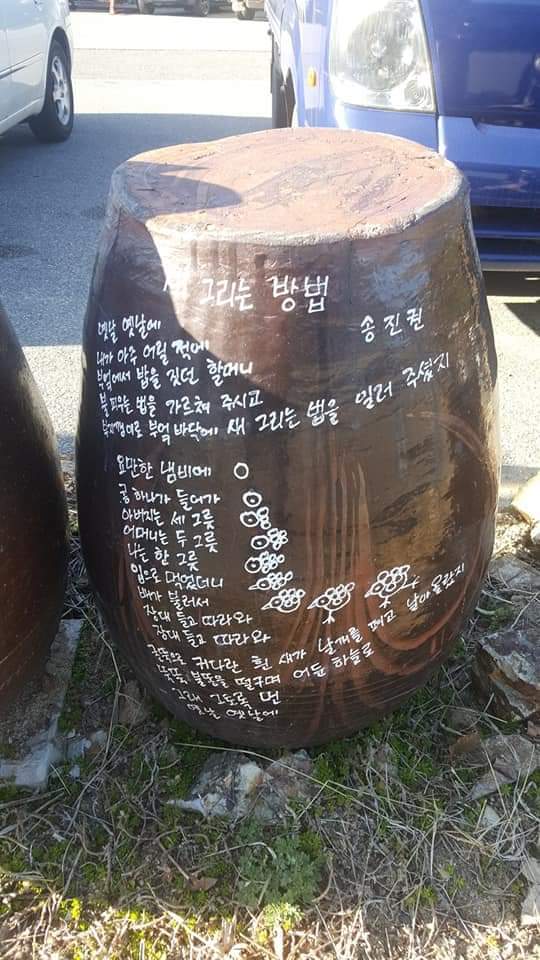 새 그리는 방법
송진권
옛날 옛날에
내가 아주 어릴 적에
부엌에서 밥을 짓던 할머니
불 피우는 법을 가르쳐 주시고
부지깽이로 부엌 바닥에 새 그리는 법을 일러 주셨지
요만한 냄비에
콩 하나가 들어가
아버지는 세 그릇
어머니는 두 그릇
나는 한 그릇
입으로 먹었더니
배가 불러서
장대 들고 따라와
장대 들고 따라와
커다란 흰 새가 날개를 펴고 날아올랐지
불똥을 떨구며 어둔 하늘로
그래 그토록 먼
옛날 옛날에